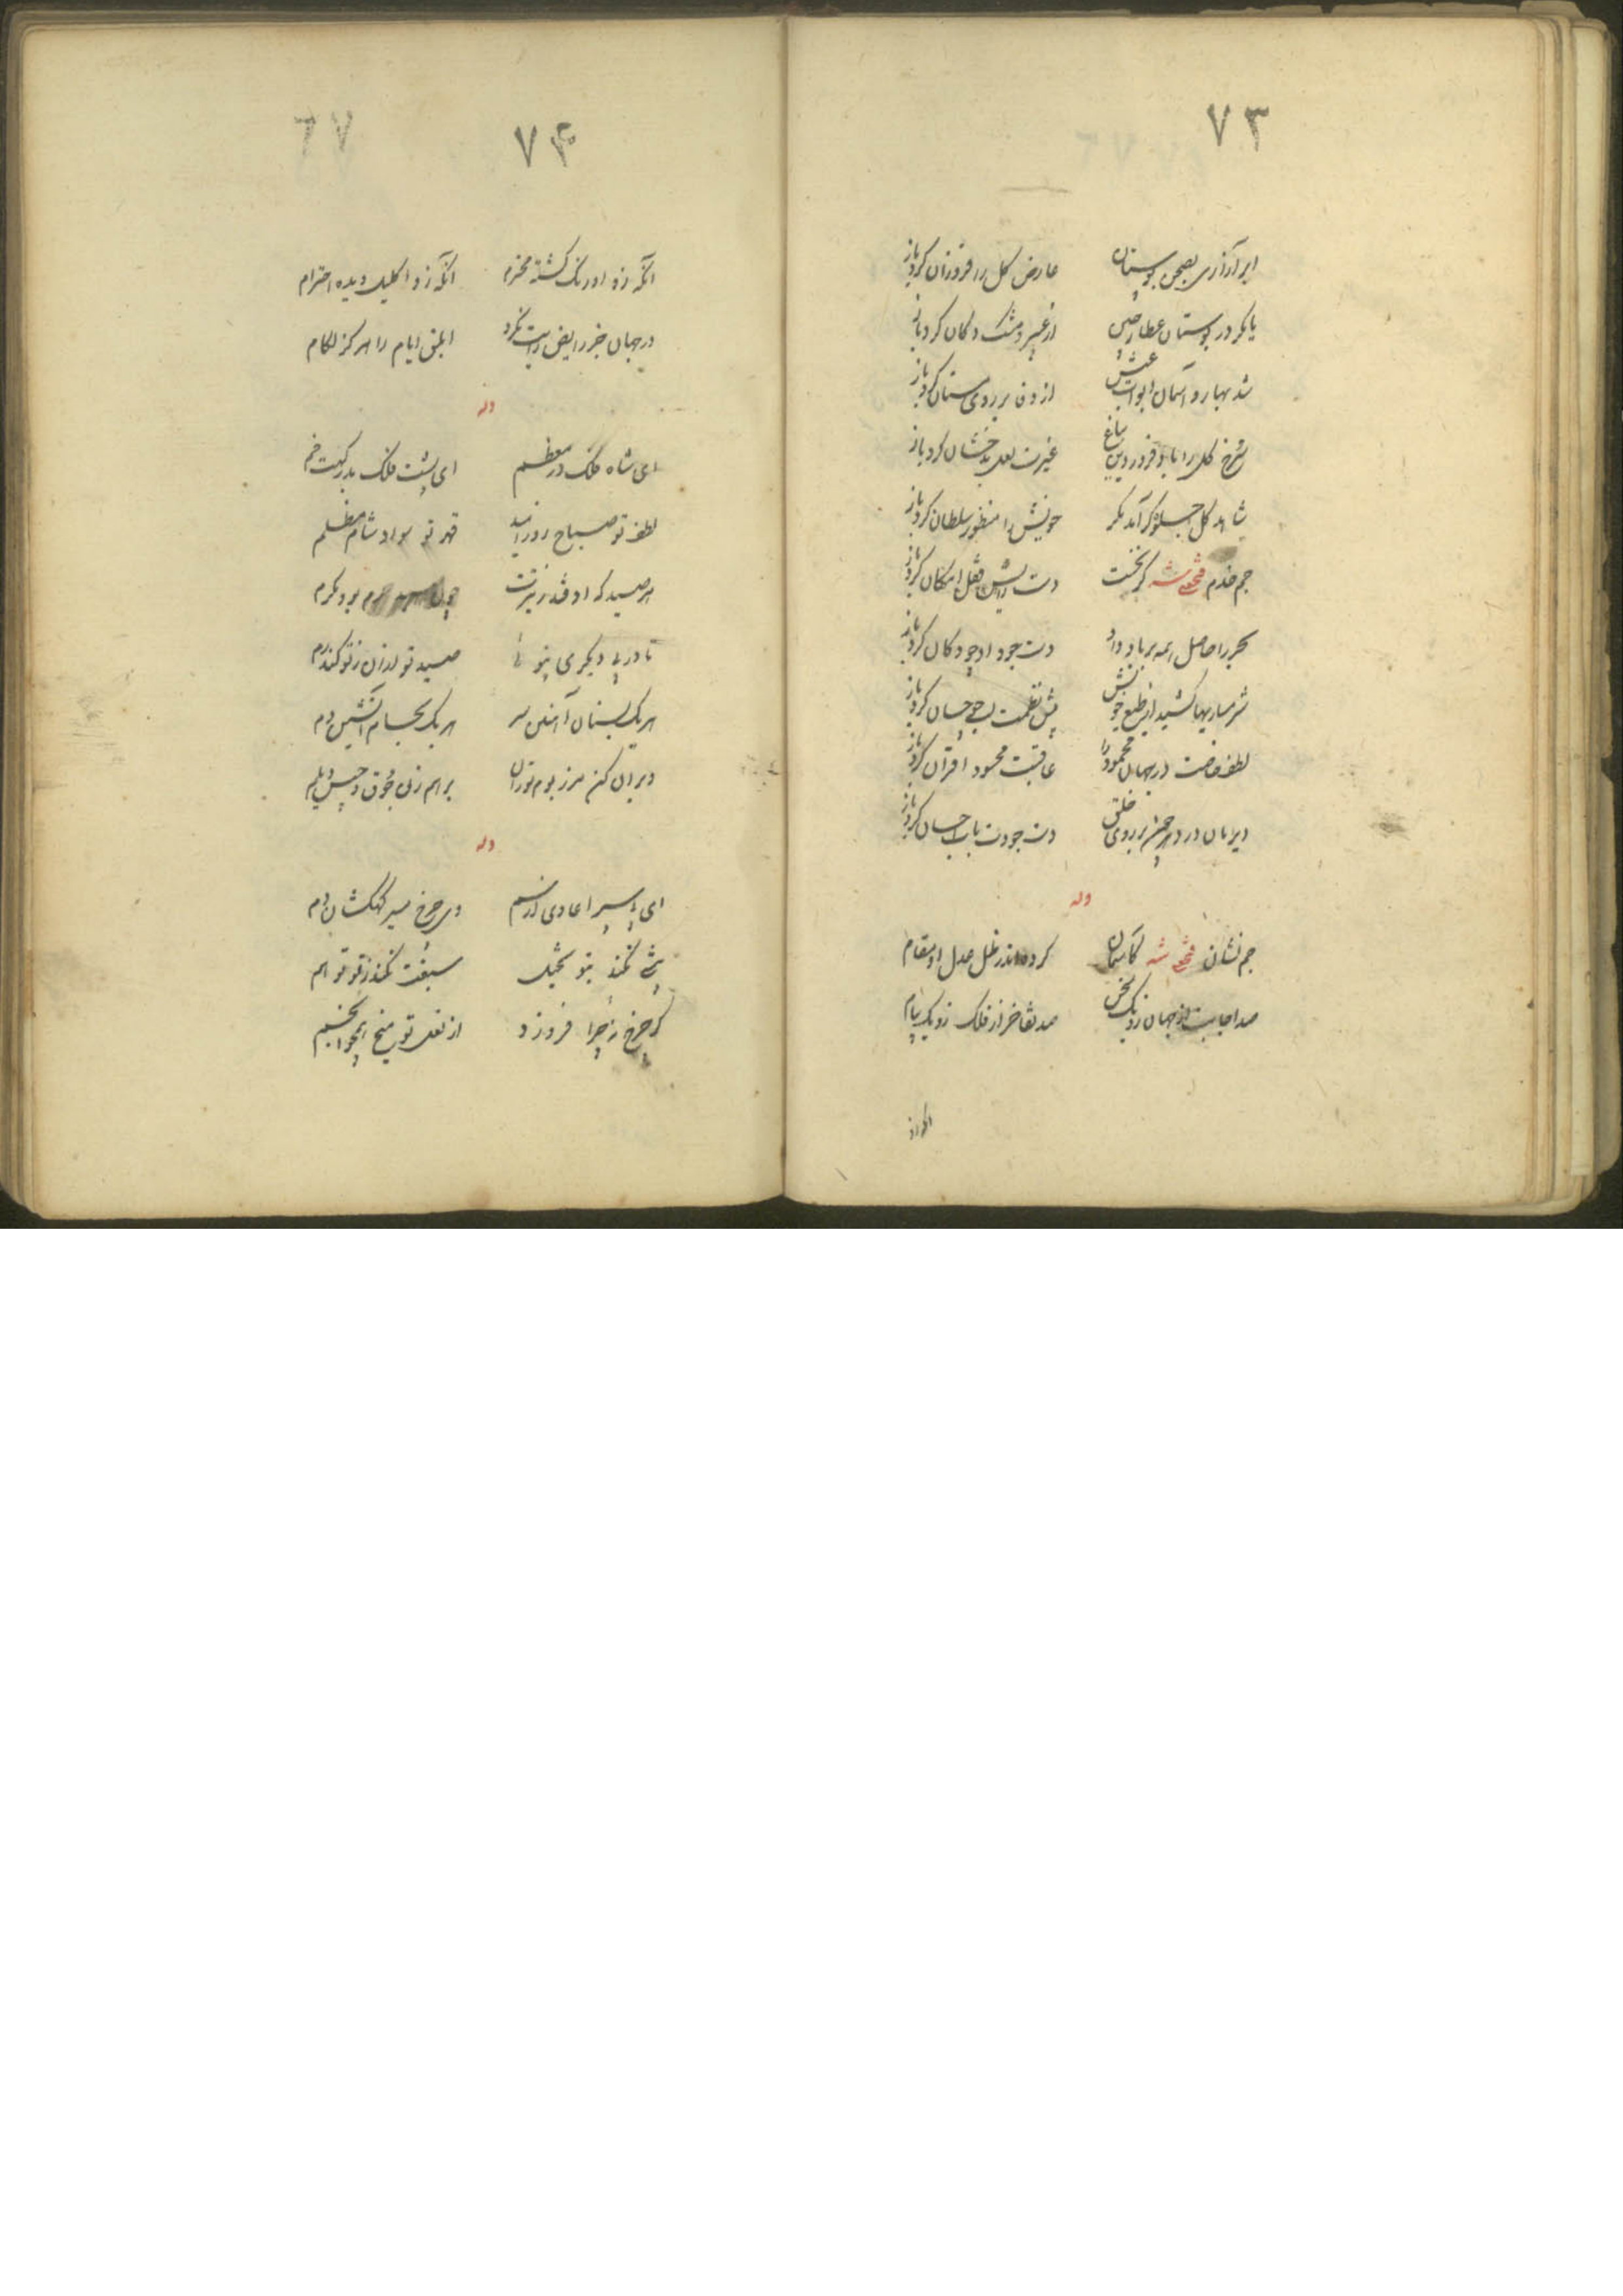 ٧٣
ابر آزاری بصحن بوستان عارض کل را فروزان کرد باز
یا مکر در بوستان عطار چین از عنبر و مشک دکان کرد باز
شد بهار و آسمان ابواب عیش از وفا بر روی مستان کرد باز
شرخ کل را باد فروردین بباغ غیرت لعل بدخشان کرد باز
شاهد کل جلوه کر آمد مکر خویش را منظور سلطان کرد باز
جم خدم فتحعلی شه کز نخست دست رایش قفل امکان کرد باز
بحر را حاصل همه بر باد داد دست جود او چو دکان کرد باز
شرمساریها کشید از طبع خویش پیش نظمت حسان کرد باز
لطف خاصت در جهان محمود را عاقبت محسود اقران کرد باز
دیر مان در دهر بر روی خلق دست جودت باب احسان کرد باز
وله
جم نشان فتحعلی شه کآسمان کرده اندر ظل عدل او مقام
صد اجابت از جهان زو یک سخن صد تفاخر از فلک زو یک پیام
انکه زو
٧٤
٦٧
انکه زو اورنک کشته محترم انکه زو اکلیل دیده احترام
در جهان جز رایض رایت نکرد ابلق ایام را هرکز لکام
وله
ای شاه فلک در معظم ای پشت فلک بدرکهت خم
لطف تو صباح روز امید قهر تو سواد شام مظلم
هر صید که اوفتد ز تیرت چون صید حرم بود مکرم
تا در پی دیکری بتو صید تو لرزان ز تو کند رم
هر یک بسنان آهنین سر هر یک بحسام آتشین دم
ویران کن مرز بوم توران برهم زن جوق و جیش دیلم
وله
ای سپر اعادی از سم وی چرخ مسیر کهکشان دم
نکند بتو تخیل سبقت نکند ز تو توهم
کر چرخ ز چرا فروزد از نعل تو میخ همچو انجم